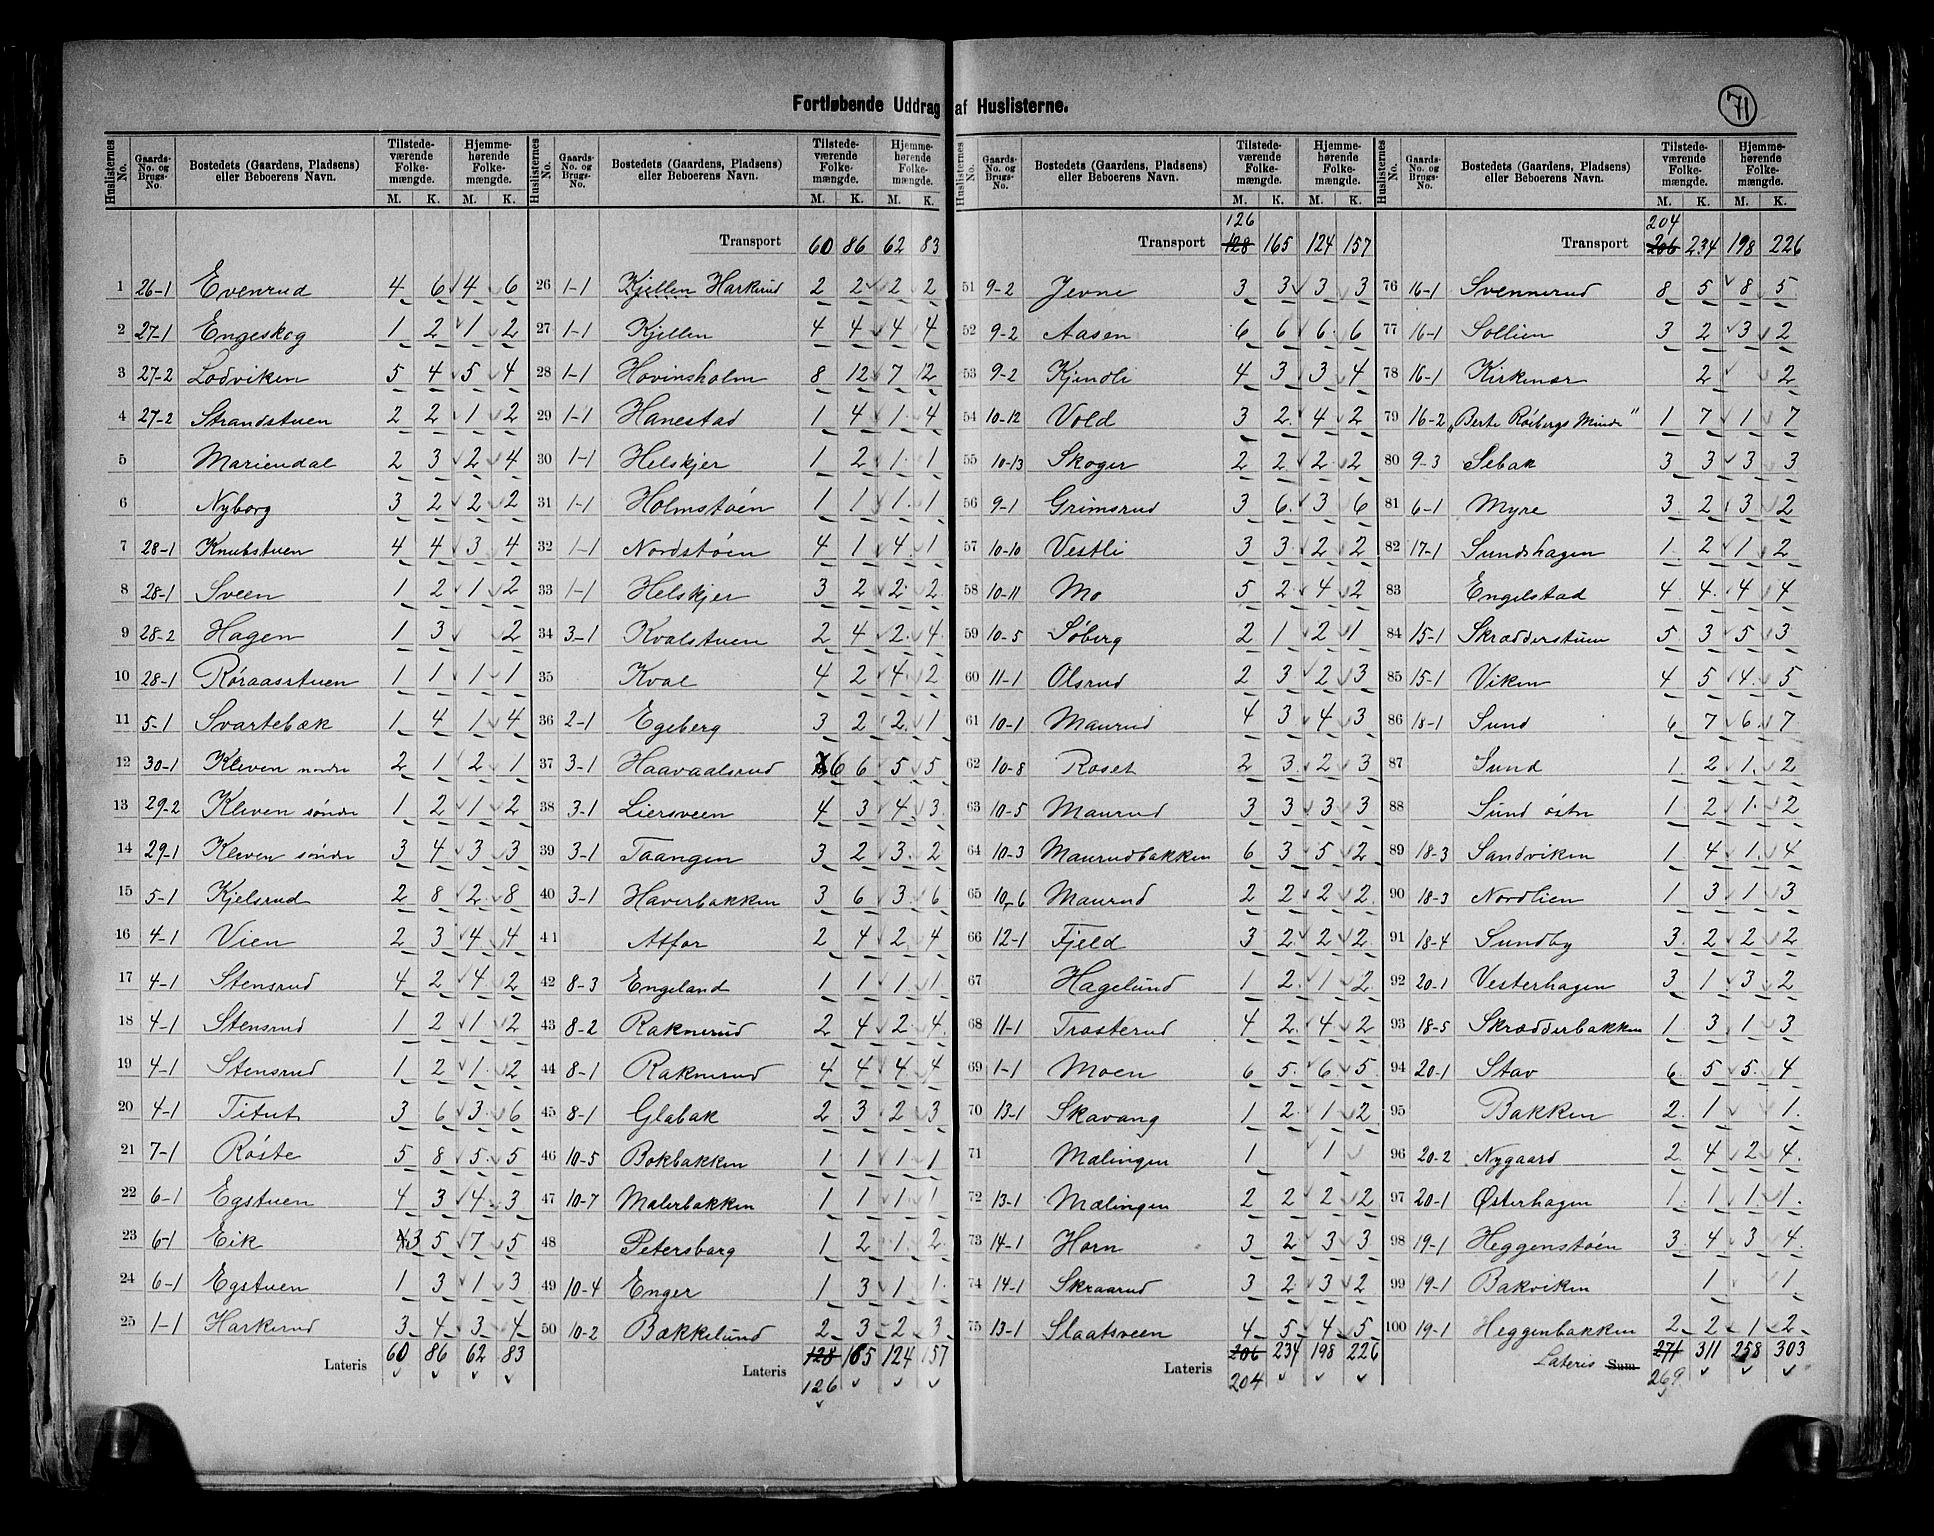 Fortløbende Uddrag af Huslisterne.
71
Huslisternes No. | Gaards-No. og Brugs-No. | Bostedets (Gaardens, Pladsens) eller Beboerens Navn. | Tilstedeværende Folkemængde. M. K. | Hjemmehørende Folkemængde. M. K.
1 26-1 Evenrud 4 6 4 6
2 27-1 Engeskog 1 2 1 2
3 27-2 Lodviken 5 4 5 4
4 27-2 Strandstuen 2 2 1 2
5 Mariendal 2 3 2 4
6 Nyborg 3 2 2 2
7 28-1 Knubstuen 4 4 3 4
8 28-1 Sveen 1 2 1 2
9 28-2 Hagen 1 3 2
10 28-1 Røraasstuen 1 1 1 1
11 5-1 Svartebæk 1 4 1 4
12 30-1 Kleven nordre 2 1 2 1
13 29-2 Kleven søndre 1 2 1 2
14 29-1 Kleven søndre 3 4 3 3
15 5-1 Kjelsrud 2 8 2 8
16 4-1 Vien 2 3 4 4
17 4-1 Stensrud 4 2 4 2
18 4-1 Stensrud 1 2 1 2
19 4-1 Stensrud 1 2 1 2
20 4-1 Titut 3 6 3 6
21 7-1 Røste 5 8 5 5
22 6-1 Egstuen 4 3 4 3
23 6-1 Eik 3 5 7 5
24 6-1 Egstuen 1 3 1 3
25 1-1 Harkerud 3 4 3 4
Lateris 60 86 62 83
Huslisternes No. | Gaards-No. og Brugs-No. | Bostedets (Gaardens, Pladsens) eller Beboerens Navn. | Tilstedeværende Folkemængde. M. K. | Hjemmehørende Folkemængde. M. K.
Transport 60 86 62 83
26 1-1 Kjellen Harkerud 2 2 2 2
27 1-1 Kjellen 4 4 4 4
28 1-1 Hovinsholm 8 12 7 12
29 1-1 Hanestad 1 4 1 4
30 1-1 Helskjer 1 2 1 1
31 1-1 Holmstøen 1 1 1 1
32 1-1 Nordstøen 4 1 4 1
33 1-1 Helskjer 3 2 2 2
34 3-1 Kvalstuen 2 4 2 4
35 Kval 4 2 4 2
36 2-1 Egeberg 3 2 2 1
37 3-1 Haavaalsrud 6 6 5 5
38 3-1 Liersveen 4 3 4 3
39 3-1 Taangen 3 2 3 2
40 3-1 Haverbakken 3 6 3 6
41 Atfor 2 4 2 4
42 8-3 Engeland 1 1 1 1
43 8-2 Raknerud 2 4 2 4
44 8-1 Raknerud 4 4 4 4
45 8-1 Glabak 2 3 2 3
46 10-5 Bokbakken 1 1 1 1
47 10-7 Malerbakken 1 1 1 1
48 Petersborg 1 2 1 2
49 10-4 Enger 1 3 1 1
50 10-2 Bækkelund 2 3 2 3
Lateris 128 165 124 157
126
Huslisternes No. | Gaards-No. og Brugs-No. | Bostedets (Gaardens, Pladsens) eller Beboerens Navn. | Tilstedeværende Folkemængde. M. K. | Hjemmehørende Folkemængde. M. K.
126
Transport 128 165 124 157
51 9-2 Jevne 3 3 3 3
52 9-2 Aasen 6 6 6 6
53 9-2 Kjendli 4 3 3 4
54 10-12 Vold 3 2 4 2
55 10-13 Skoger 2 2 2 2
56 9-1 Grimsrud 3 6 3 6
57 10-10 Vestli 3 3 2 2
58 10-11 Mo 5 2 4 2
59 10-5 Søberg 2 1 2 1
60 11-1 Olsrud 2 3 2 3
61 10-1 Maurud 4 3 4 3
62 10-8 Roset 2 3 2 3
63 10-5 Maurud 3 3 3 3
64 10-3 Maurudbakken 6 3 5 2
65 10-6 Maurud 2 2 2 2
66 12-1 Fjeld 3 2 2 2
67 Hagelund 1 2 1 2
68 11-1 Trosterud 4 2 4 2
69 1-1 Moen 6 5 6 5
70 13-1 Skavang 1 2 1 2
71 Mælingen 1 1
72 13-1 Mælingen 2 2 2 2
73 14-1 Horn 3 2 3 3
74 14-1 Skraarud 3 2 3 2
75 13-1 Slaatsveen 4 5 4 5
Lateris 206 234 198 226
204
Huslisternes No. | Gaards-No. og Brugs-No. | Bostedets (Gaardens, Pladsens) eller Beboerens Navn. | Tilstedeværende Folkemængde. M. K. | Hjemmehørende Folkemængde. M. K.
204
Transport 206 234 198 226
76 16-1 Svennerud 8 5 8 5
77 16-1 Sollien 3 2 3 2
78 16-1 Kirkenær 2 2
79 16-2 „Berte Røibergs Minde“ 1 7 1 7
80 9-3 Sebak 3 3 3 3
81 6-1 Myre 3 2 3 2
82 17-1 Sundshagen 1 2 1 2
83 Engelstad 4 4 4 4
84 15-1 Skrædderstuen 5 3 5 3
85 15-1 Viken 4 5 4 5
86 18-1 Sund 6 7 6 7
87 Sund 1 2 1 2
88 Sund østre 1 2 1 2
89 18-3 Sandviken 1 4 1 4
90 18-3 Nordlien 1 3 1 3
91 18-4 Sundby 3 2 2 2
92 20-1 Vesterhagen 3 1 3 2
93 18-5 Skrædderbakken 1 3 1 3
94 20-1 Stav 6 5 5 4
95 Bakken 2 1 1
96 20-2 Nygaard 2 4 2 4
97 20-1 Østerhagen 1 1 1 1
98 19-1 Heggenstøen 3 4 3 4
99 19-1 Bakviken 1 1
100 19-1 Heggenbakken 2 2 1 2
Lateris Sum 271 311 258 303
269